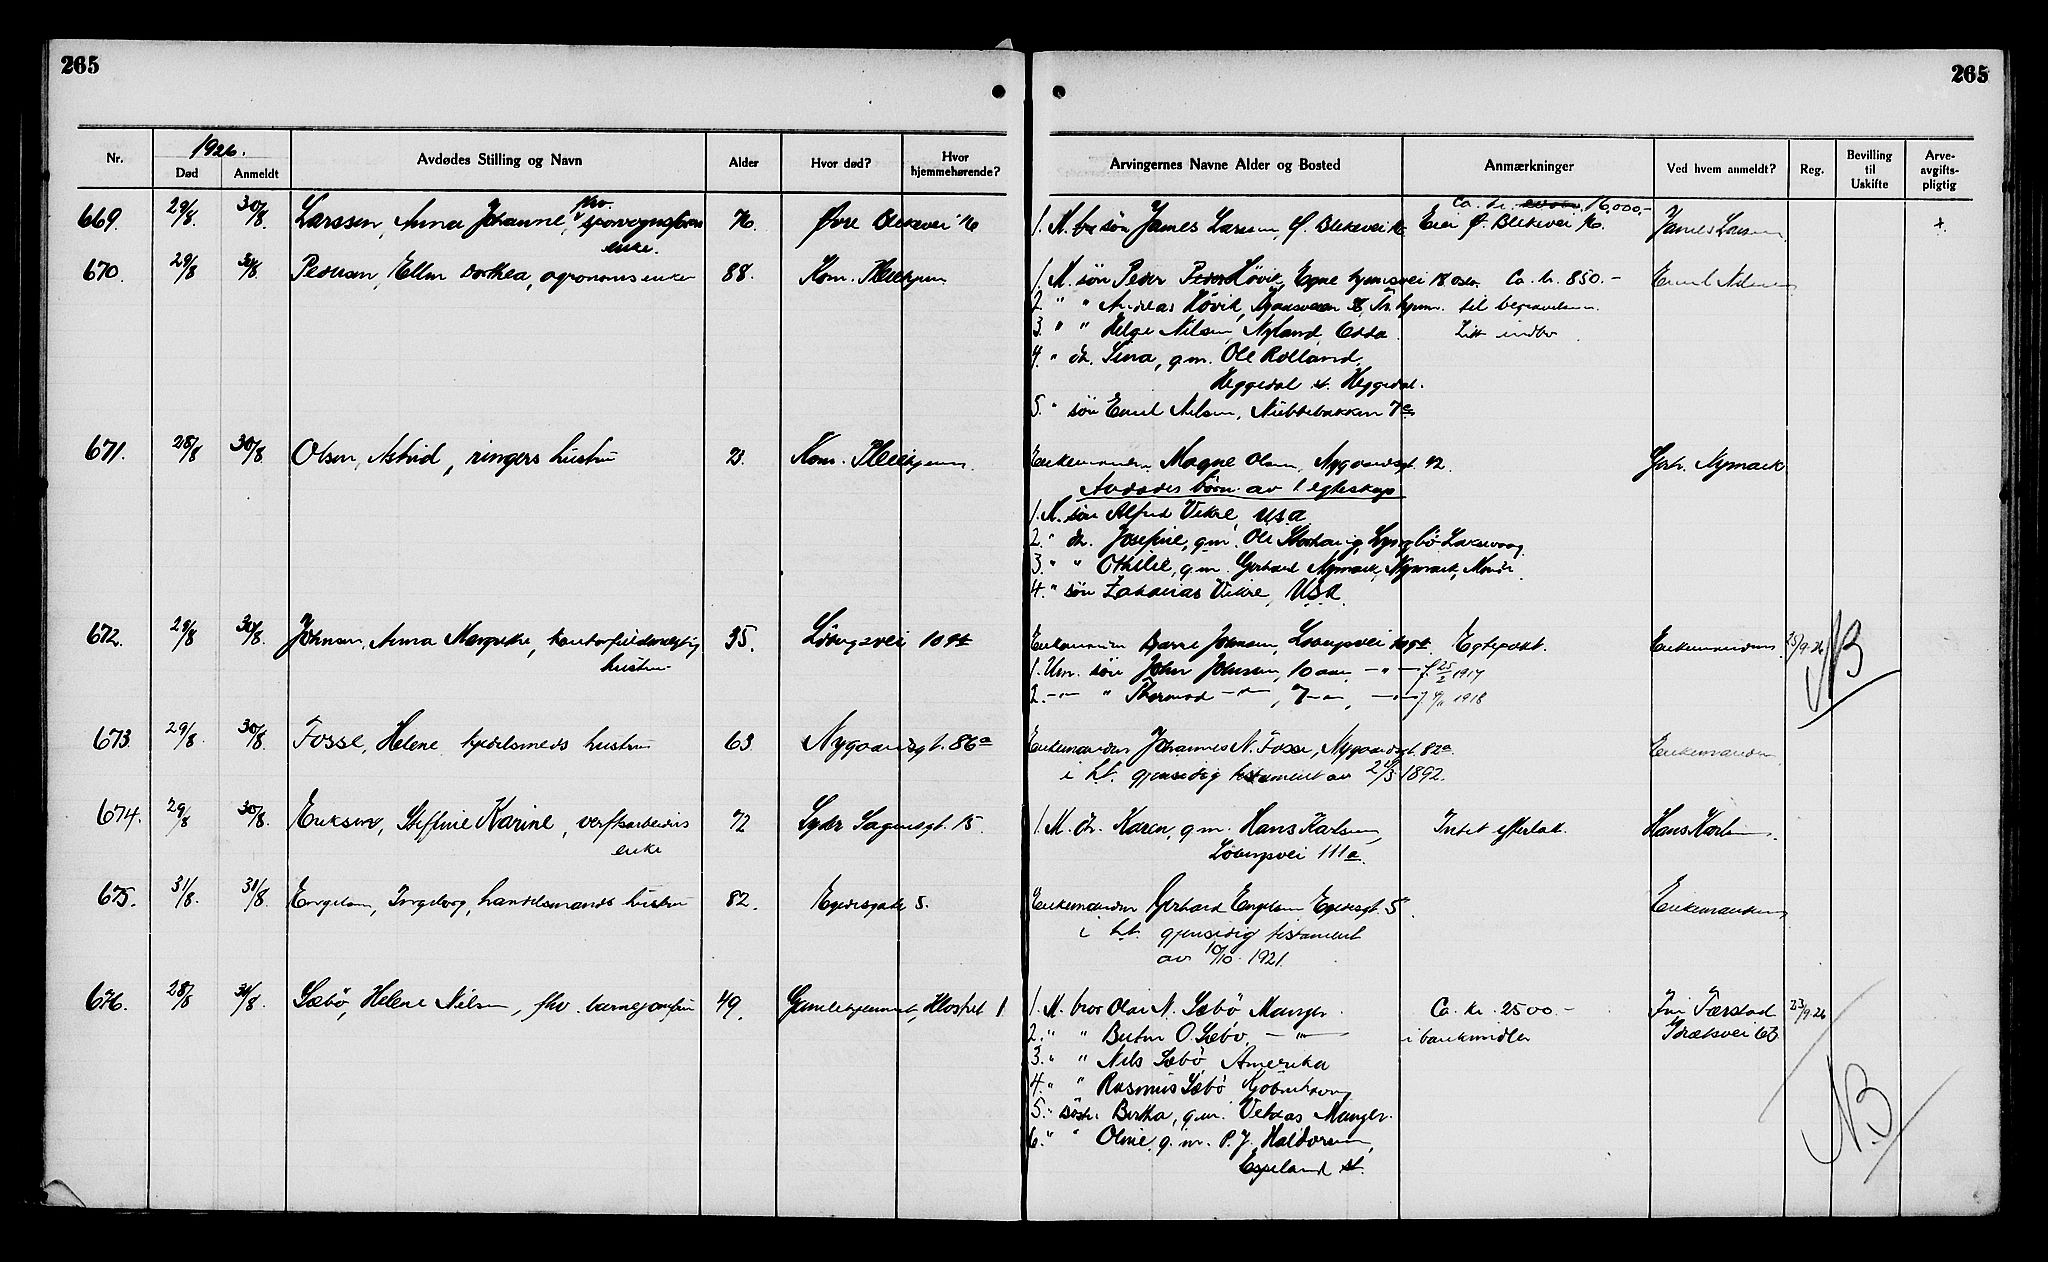 265
265
1926.
Nr.
Død
Anmeldt
Avdødes Stilling og Navn
Alder
Hvor død?
Hvor hjemmehørende?
Arvingernes Navne Alder og Bosted
Anmærkninger
Ved hvem anmeldt?
Reg.
Bevilling til Uskifte
Arve-avgifts-pligtig
669. 29/8. 30/8. Larssen, Anna Johanne, fhv. sporvognsførers 76. Øvre Blekevei 16
enke.
1. M. søn James Larssen, Ø. Blekevei 16 Eier Ø. Blekevei 16. James Larssen +
Ca. kr. 16,000,-
670. 29/8 30/8. Ellen Dorthea, agronoms enke 88. Kom. Pleiehjem
1. M. søn Peder Høvik, Egne hjemsvei 18 Oslo. Ca. kr. 850.- Emil Nilsen
2. " " Andreas Høvik, Tr.hjem. til begravelsen.
3. " " Helge Nilsen, Nyland, Odda Litt indbo.
4. " dt. Sina, g.m. Ole Rolland,
Heggedal st. Heggedal.
5. " søn Emil Nilsen, Nubbebakken 7a
671. 28/8 30/8 Olsen, Astrid, ringers hustru Kom. Pleiehjem.
Enkemanden Magne Olsen, Nygaardsgt. 42. Gerh. Nymark
Avdødes børn av 1. egteskap
1. M. søn Alfred Vikre, USA
2. " dt. Josefine, g.m. Ole Laksevaag.
3. " " Othilie, g.m. Gerhard Nymark, Nymark,
4. " søn Zakarias Vikre, USA.
672. 29/8 30/8. Johnsen, Anna Margrethe, kontorfuldmægtig 35. Løbergsvei 109
hustru
Enkemanden Bjarne Johnsen, Løbergsvei 109 Egtepakt. Enkemanden 25/9.26 NB
1. Um. søn John Johnsen, 10 aar, -"- f. 25/2 1917
2. -"- " Thormod -"-, 7 -"-, -"- 1918
673. 29/8. 30/8. Fosse, Helene kjedelsmeds hustru 63. Nygaardsgt. 86a
Enkemanden Johannes N. Fosse, Nygaardsgt. 82a. Enkemanden
i h.t. gjensidig testament av 1892.
674. 29/8 30/8. Eriksen, Steffine Karine, verftsarbeiders 72 Sydr Sagensgt. 15.
enke
1. M. dt. Karen, g.m. Hans Karlsen, Intet efterlatt. Hans Karlsen
Løbergsvei 111a.
675. 31/8. 31/8. Engelsen, Ingeborg, handelsmands hustru 82. Egedesgate 5.
Enkemanden Gerhard Engelsen Egedesgt. 5 Enkemanden
i h.t. gjensidig testament
av 10/10. 1921.
676. 28/8 31/8. Sæbø, Helene Nilsen, fhv. barnejomfru 49. Gamlehjemmet, Klostret 1
1. M. bror Olai N. Sæbø Manger. Ca. kr. 2500.- 23/9.26
2. " " O. Sæbø, -"- i bankmidler
3. " " Nils Sæbø, Amerika
4. " " Rasmus Sæbø Kjøbenhavn
5. " søster Bertha, g.m. Manger.
6. " " Oline, g.m. P. J. Haldorsen,
Espeland st.
NB